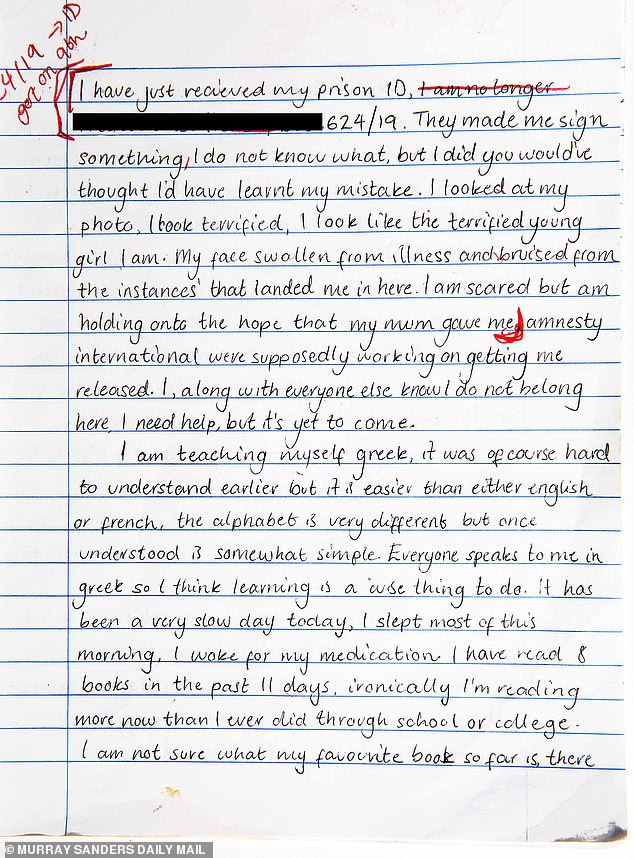 4/19 → ID
got on 9th
I have just recieved my prison ID, I am no longer
624/19. They made me sign
something, I do not know what, but I did you would've
thought I'd have learnt my mistake. I looked at my
photo, I look terrified, I look like the terrified young
girl I am. My face swollen from illness and bruised from
the instances that landed me in here. I am scared but am
holding onto the hope that my mum gave me, amnesty
international were supposedly working on getting me
released. I, along with everyone else know I do not belong
here, I need help, but it's yet to come.
I am teaching myself greek, it was ofcourse hard
to understand earlier but it is easier than either english
or french, the alphabet is very different but once
understood is somewhat simple. Everyone speaks to me in
greek so I think learning is a wise thing to do. it has
been a very slow day today, I slept most of this
morning, I woke for my medication I have read 8
books in the past 11 days, ironically I'm reading
more now than I ever did through school or college.
I am not sure what my favourite book so far is, there
© MURRAY SANDERS DAILY MAIL